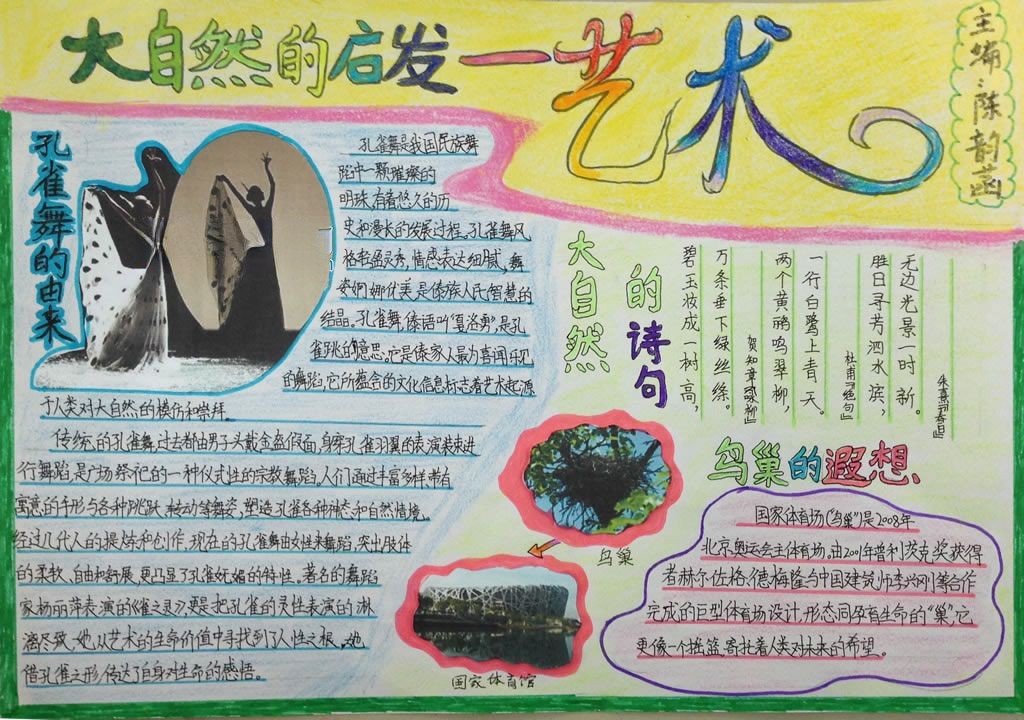 大自然的启发—艺术
主编：陈韵菡
孔雀舞的由来
孔雀舞是我国民族舞
蹈中一颗璀璨的
明珠,有着悠久的历
史和漫长的发展过程。孔雀舞风
格轻盈灵秀,情感表达细腻,舞
姿婀娜优美,是傣族人民智慧的
结晶。孔雀舞,傣语叫“戛洛勇”,是孔
雀跳的意思。它是傣家人最为喜闻乐见
的舞蹈,它所蕴含的文化信息标志着艺术起源
于人类对大自然的模仿和崇拜。
传统的孔雀舞,过去都由男子头戴金盔假面,身穿孔雀羽翼的表演装束进
行舞蹈,是广场祭祀的一种仪式性的宗教舞蹈。人们通过丰富多样带有
寓意的手形与各种跳跃、转动等舞姿,塑造孔雀各种神态和自然情境。
经过几代人的提炼和创作,现在的孔雀舞由女性来舞蹈,突出肢体
的柔软、自由和舒展,更凸显了孔雀妩媚的特性。著名的舞蹈
家杨丽萍表演的《雀之灵》,更是把孔雀的灵性表演的淋
漓尽致,她从艺术的生命价值中寻找到了人性之根。她
借孔雀之形,传达了自身对生命的感悟。
大自然
的诗句
无边光景一时新。
胜日寻芳泗水滨,
朱熹《春日》
一行白鹭上青天。
两个黄鹂鸣翠柳,
杜甫《绝句》
万条垂下绿丝绦。
碧玉妆成一树高,
贺知章《咏柳》
鸟巢的遐想
国家体育场(“鸟巢”)是2008年
北京奥运会主体育场,由2001年普利茨克奖获得
者赫尔佐格、德梅隆与中国建筑师李兴刚等合作
完成的巨型体育场设计,形态同孕育生命的“巢”,它
更像一个摇篮,寄托着人类对未来的希望。
鸟巢
国家体育馆